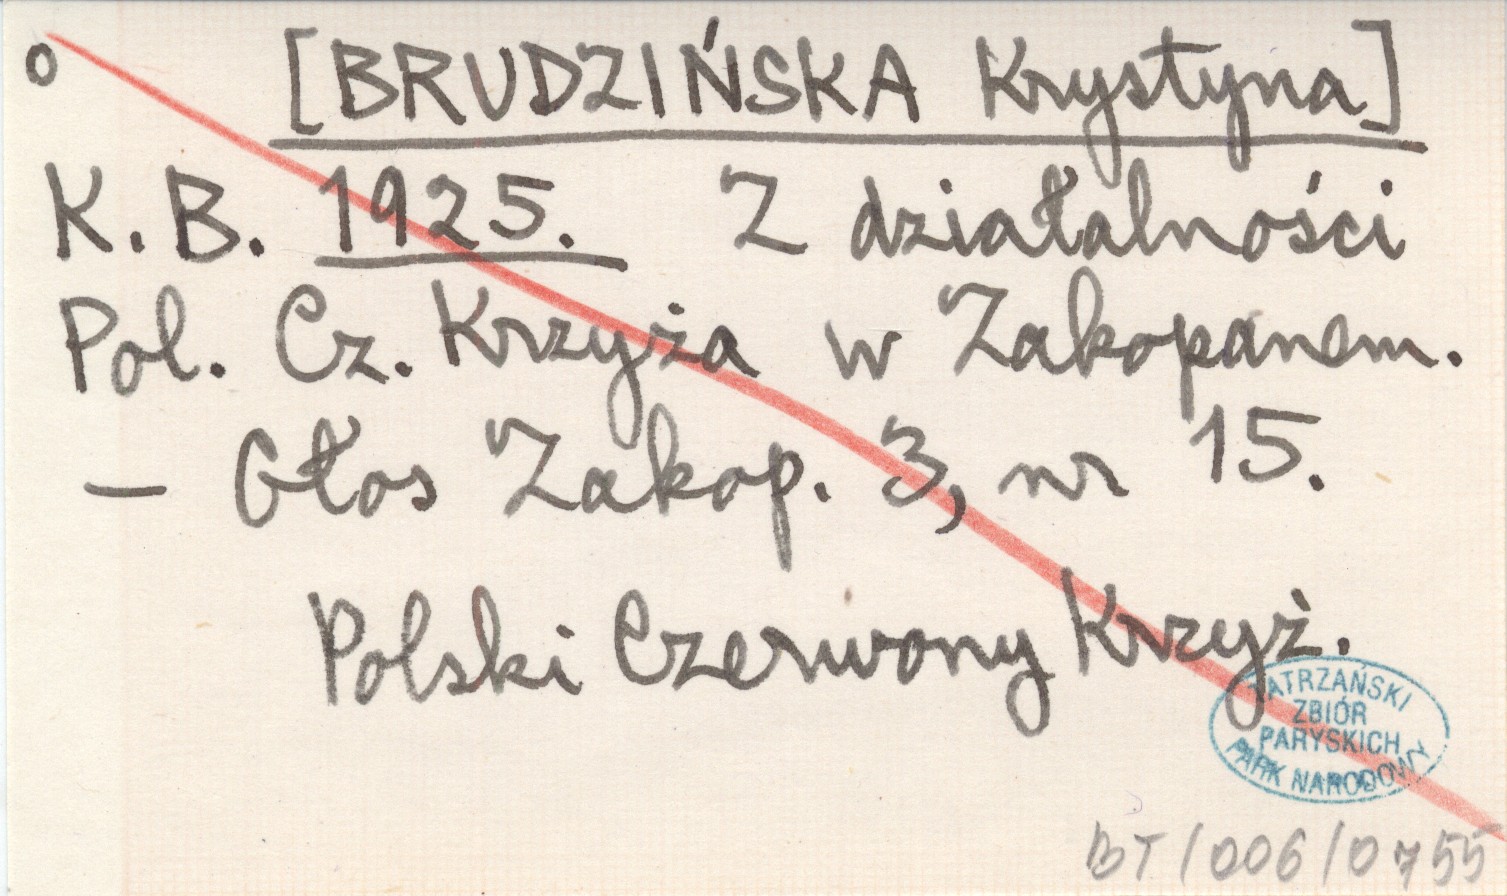 o [BRUDZIŃSKA Krystyna]
K. B. 1925. Z działalności
Pol. Cz. Krzyża w Zakopanem.
— Głos Zakop. 3, nr 15.
Polski Czerwony Krzyż.
TATRZAŃSKI
ZBIÓR
PARYSKICH
PARK NARODOWY
BT/006/0755